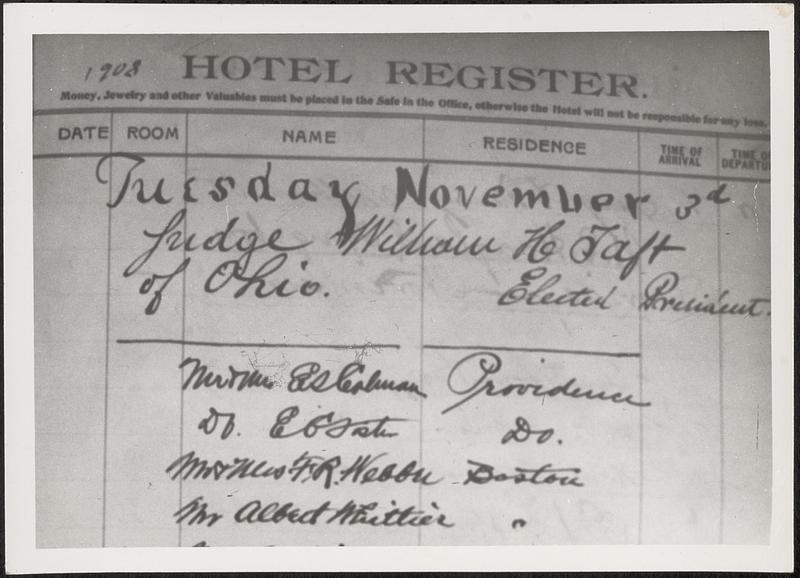 1908 HOTEL REGISTER.
Money, Jewelry and other Valuables must be placed in the Safe in the Office, otherwise the Hotel will not be responsible for any loss.
DATE ROOM NAME RESIDENCE TIME OF ARRIVAL TIME OF DEPARTU
Tuesday November 3d
Judge William H Taft
of Ohio. Elected President.
Mr & Mrs E S Colman Providence
Do. E Do.
Mr & Mrs F. R. Webber Boston
Mr Albert Whittier "